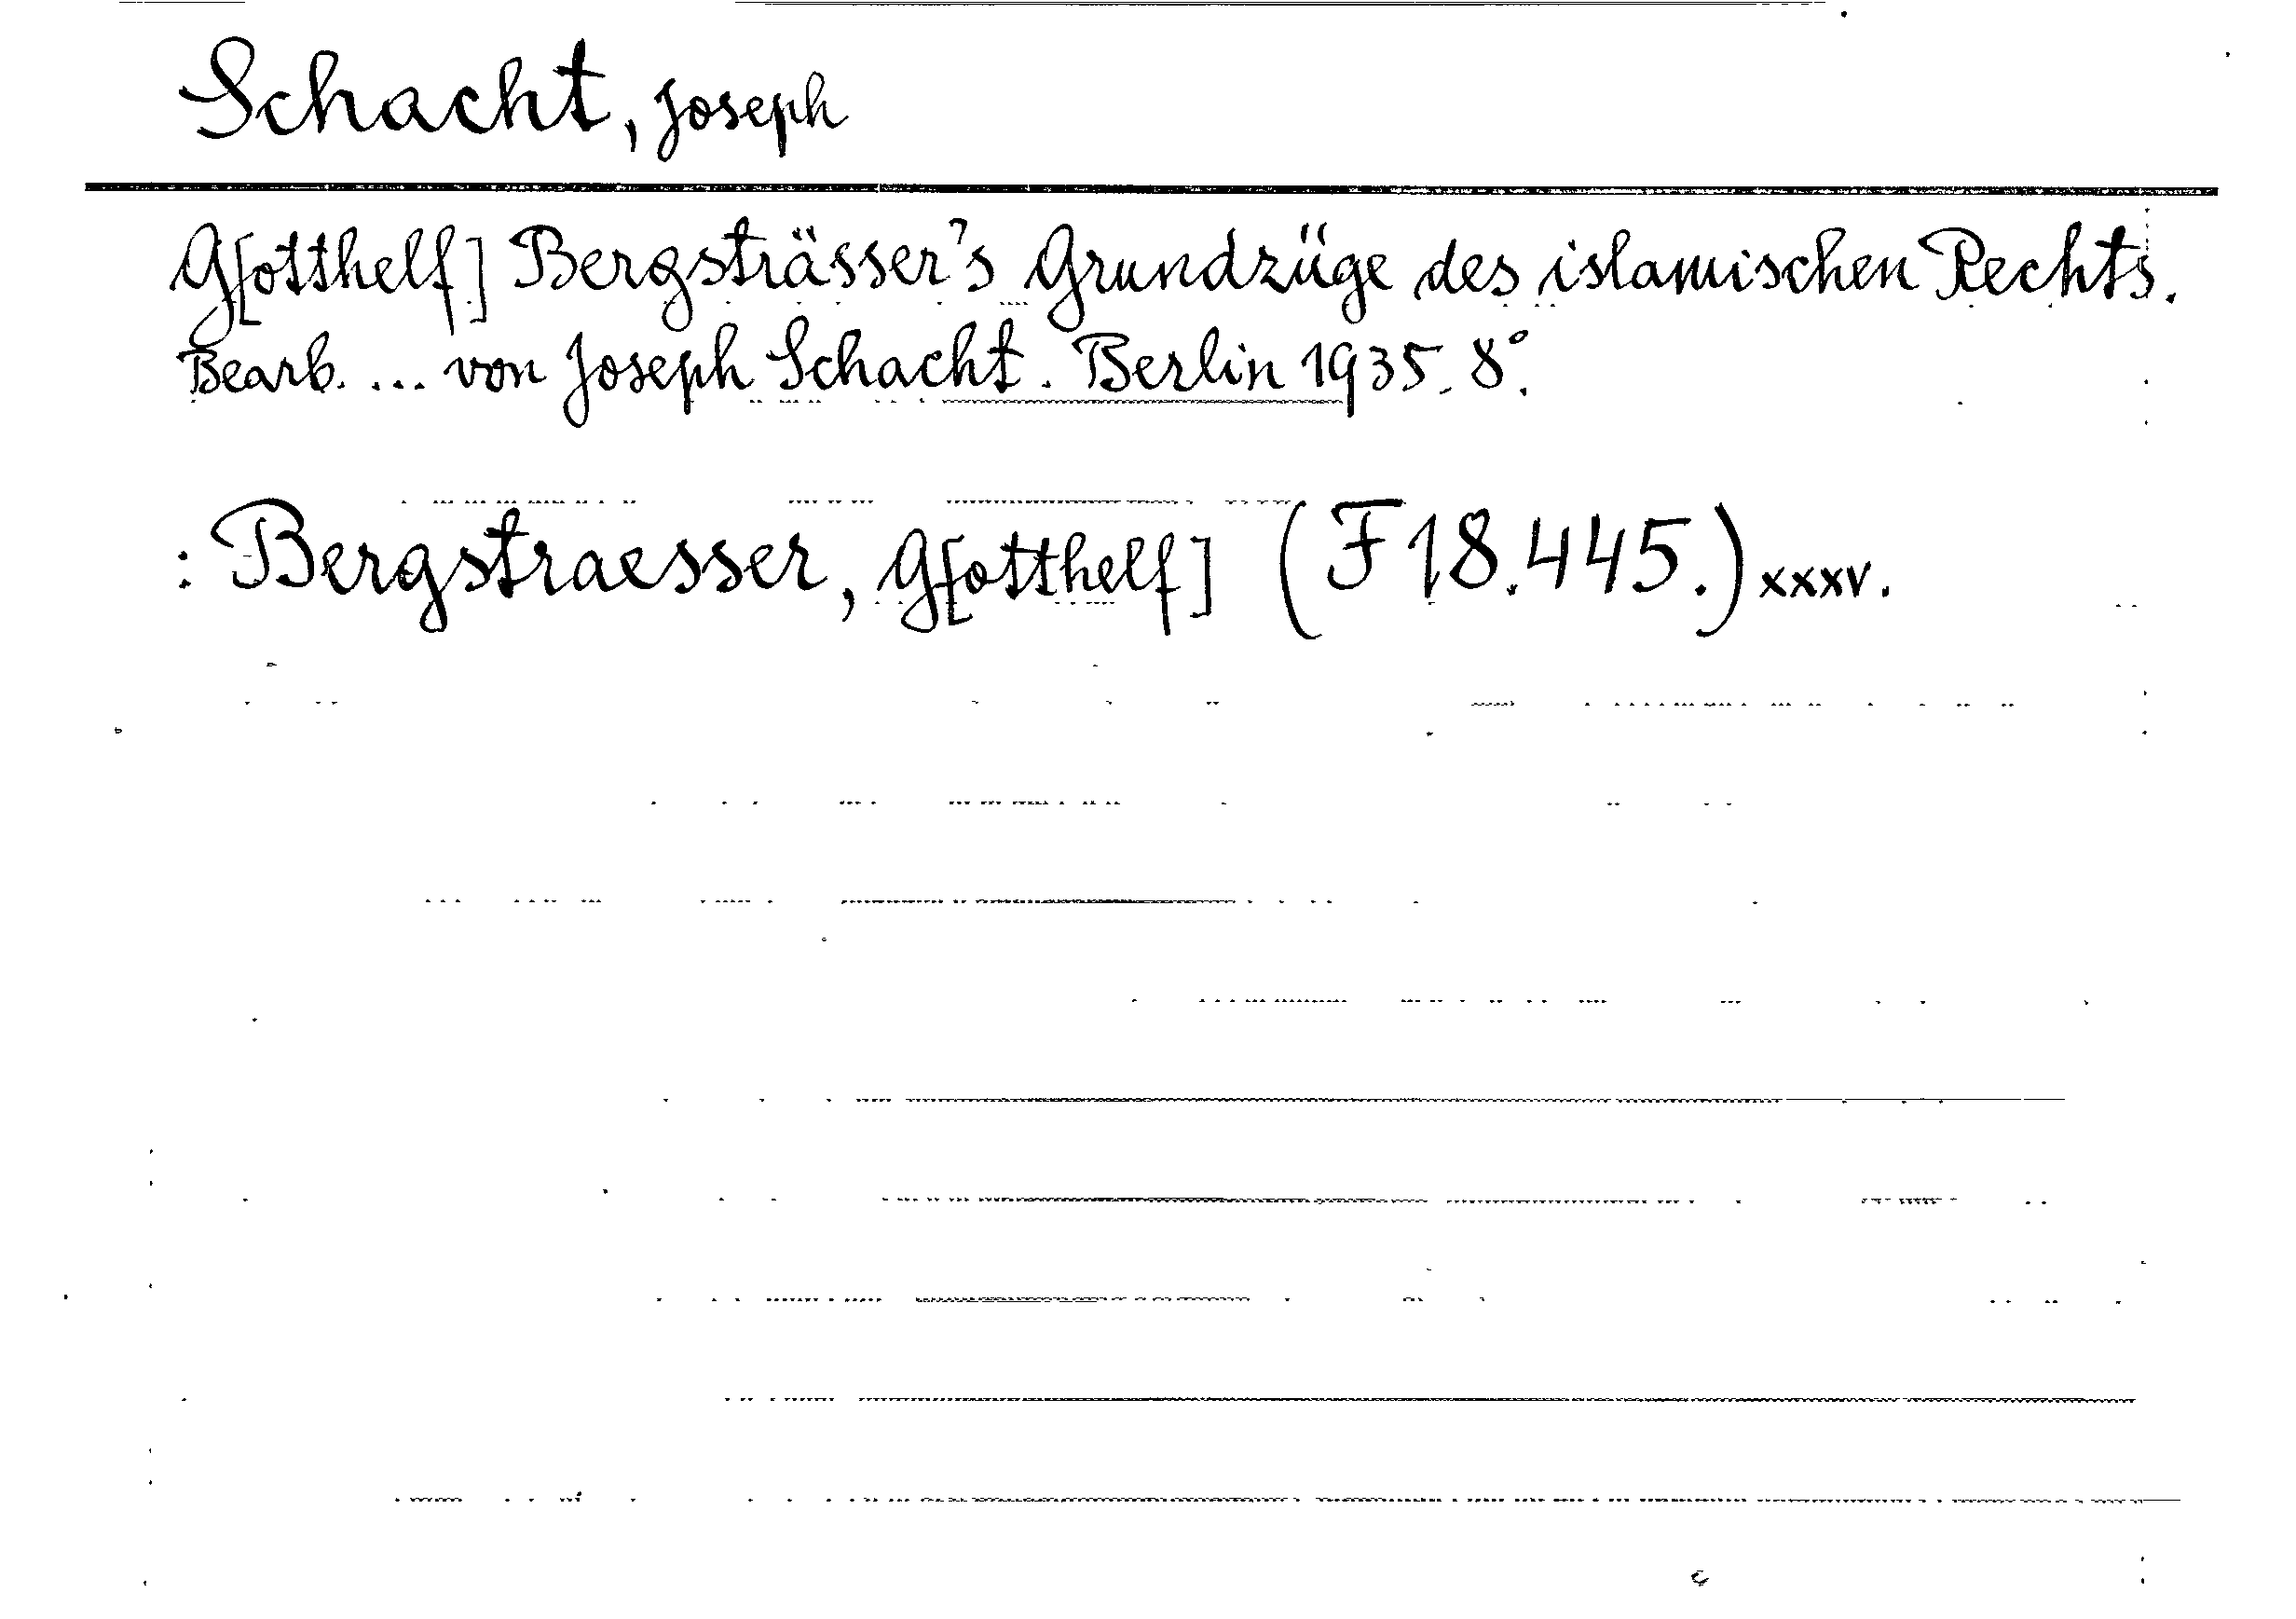 Schacht, Joseph
G[otthelf] Bergsträsser's Grundzüge des islamischen Rechts.
Bearb. ... von Joseph Schacht. Berlin 1935. 8°.
: Bergstraesser, G[otthelf] (F 18.445.) xxxv.